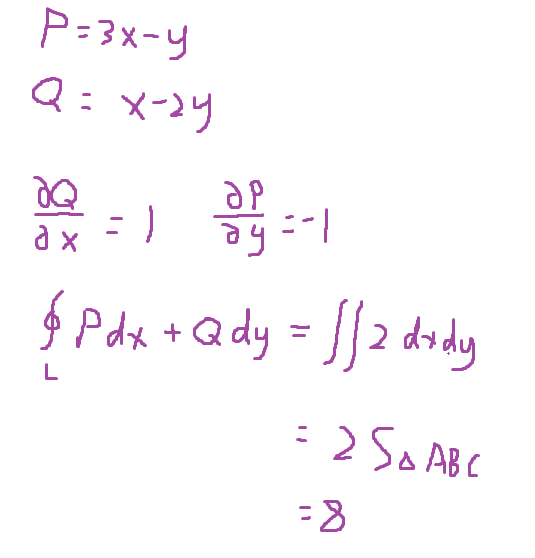 P=3x-y
Q= x-2y
∂Q/∂x = 1 ∂P/∂y = -1
∮_L Pdx + Qdy = ∬2 dxdy
= 2S△ABC
=8